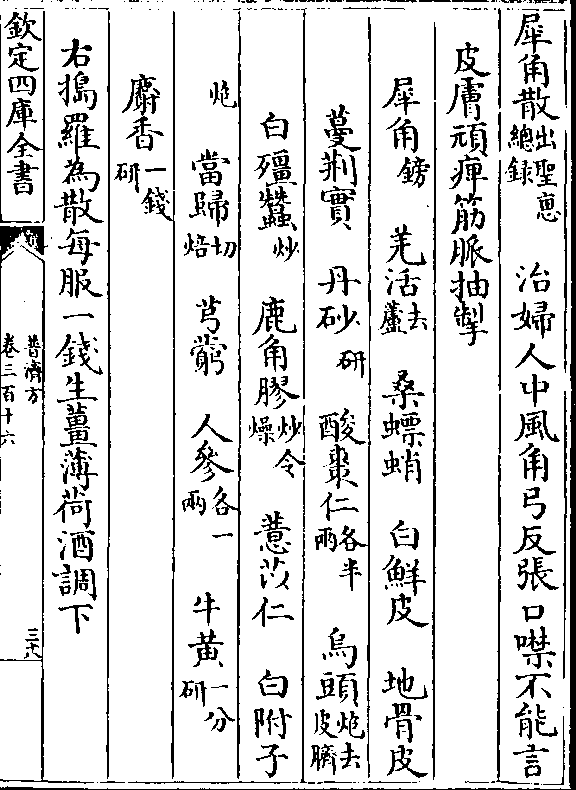 犀角散出聖惠總録　治婦人中風角弓反張口噤不能言
皮膚頑痺筋脈抽掣
犀角鎊　羌活去蘆　桑螵蛸　白鮮皮　地骨皮
蔓荆實　丹砂研　酸棗仁各半兩　烏頭炮去皮臍
白殭蠶炒　鹿角膠炒令燥　薏苡仁　白附子
炮　當歸切焙　芎藭　人參各一兩　牛黄一分研
麝香一錢研
右搗羅為散每服一錢生薑薄荷酒調下
欽定四庫全書
普濟方
卷三百十六